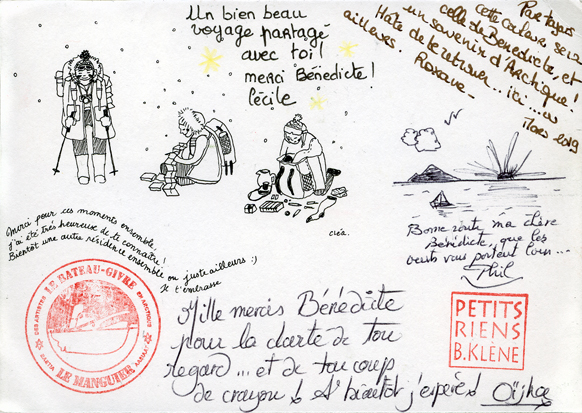 Un bien beau
voyage partagé
avec toi!
merci Bénédicte!
Cécile
Partager
cette cabane sera
celle de Bénédicte, et
un souvenir d'Arctique!
Hâte de te retrouver... ici... ou
ailleurs.
Roxane
Mars 2019
Cléa.
Merci pour ces moments ensemble,
j'ai été très heureuse de te connaître!
Bientôt une autre résidence ensemble ou juste ailleurs :)
Je t'embrasse
Bonne route, ma chère
Bénédicte, que les
vents vous portent loin...
Phil
LE BATEAU-GIVRE
DES ARTISTES EN ARCTIQUE
LE MANGUIER
Mille mercis Bénédicte
pour la clarté de ton
regard... et de ton coup
de crayon! A bientôt j'espère!
PETITS
RIENS
B.KLÈNE